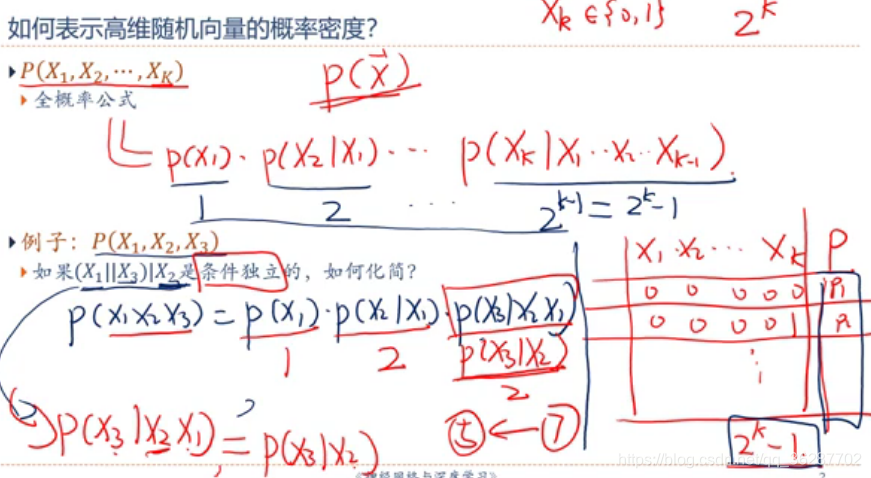 如何表示高维随机向量的概率密度?
X_k ∈{0,1} 2^k
P(X_1, X_2, ⋯, X_K)
P(X⃗)
全概率公式
p(X_1)· p(X_2|X_1) ⋯ p(X_k|X_1⋯X_2⋯X_{k-1})
1 2 ⋯ 2^{k-1} = 2^k-1
例子: P(X_1, X_2, X_3)
如果(X_1||X_3)|X_2是条件独立的, 如何化简?
p(X_1X_2X_3) = p(X_1)·p(X_2|X_1)·p(X_3|X_2X_1)
1 2 p(X_3|X_2)
2
P(X_3|X_2X_1) = p(X_3|X_2)
⑤ ← ⑦
X_1 X_2 ⋯ X_k P
0 0 0 0 0 P_1
0 0 0 0 1
⋮
2^k-1
《神经网络与深度学习》